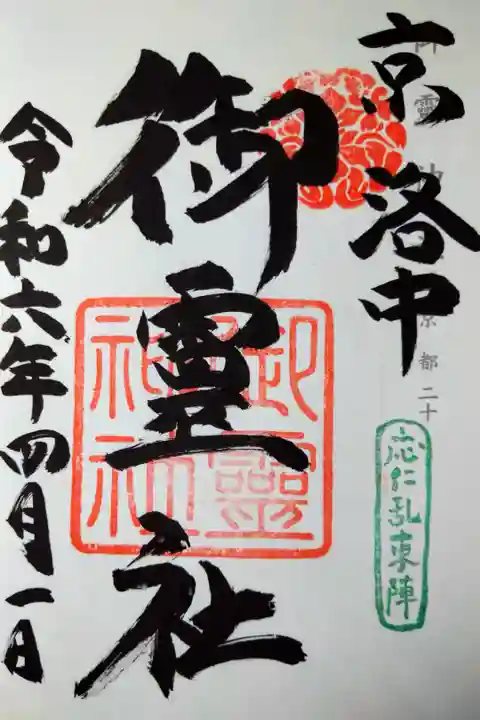 京洛中
京都二十
応仁乱東陣
御霊社
御靈神社
令和六年四月一日